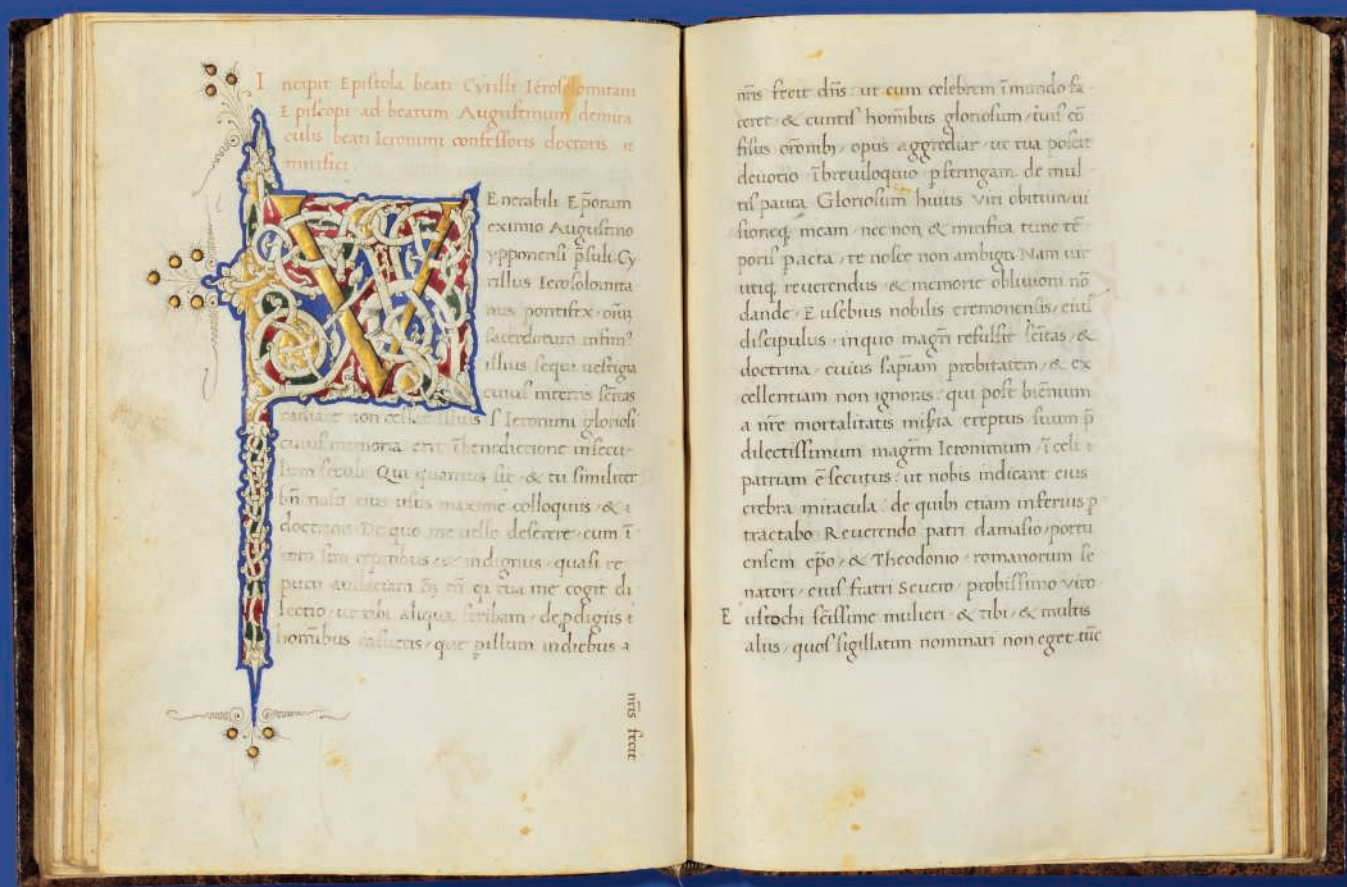 Incipit Epistola beati Cyrilli Ierosolomitani
Episcopi ad beatum Augustinum demira
culis beati Ieronimi confessoris doctoris
mirifici.
Enerabili Ep̄orum
eximio Augustino
ypponensi p̄suli. Cy
rillus Ierosolomita
nus pontifex. oiu᷒
sacerdotum infim᷒
illius sequi uestigia
cuius interris
radiare non cessat illius s Ieronimi gloriosi
cuius memoria erit ībenedictione insecu
lum seculi Qui quantus sit. & tu similiter
bn̄ nosti eius usus maxime colloquiis, &
doctrinis. De quo me uelle disserere. cum ī
indignus. quasi re
puto audaciam me cogit di
lectio, ut tibi aliqua scribam. de
hominibus que p̱ illum indiebus
nr̄is fecit
nr̄is fecit dn̄s. ut eum celebrem īmundo fa
ceret. & cuntis hominibus gloriosum, tuis cō
fisus or̄onib, opus aggrediar. ut tua poscit
deuotio ībreuiloquio pstringam. de mul
tis pauca. Gloriosum huius uiri obitum,
meam. nec non & mirifica tunc tē
poris pacta, te nosce non ambigo. Nam uir
utiq, reuerendus & memorie obliuioni nō
dande. Eusebius nobilis cremonensis, eius
discipulus. inquo magr̄i refulsit sc̄itas, &
doctrina, cuius sap̄iam probitatem, & ex
cellentiam non ignoras. qui post biēnium
a nr̄e mortalitatis mis̄ia ereptus suum p̄
dilectissimum magr̄m Ieronimum.
patriam ē secutus. ut nobis indicant eius
crebra miracula. de quib etiam inferius p
tractabo. Reuerendo patri damasio, portu
ensem ep̄o, & Theodonio. romanorum se
natori, eius fratri Seuero. probissimo uiro
Eustochi sc̄issime mulieri. & tibi, & multis
aliis, quos sigillatim nominari non eget tūc